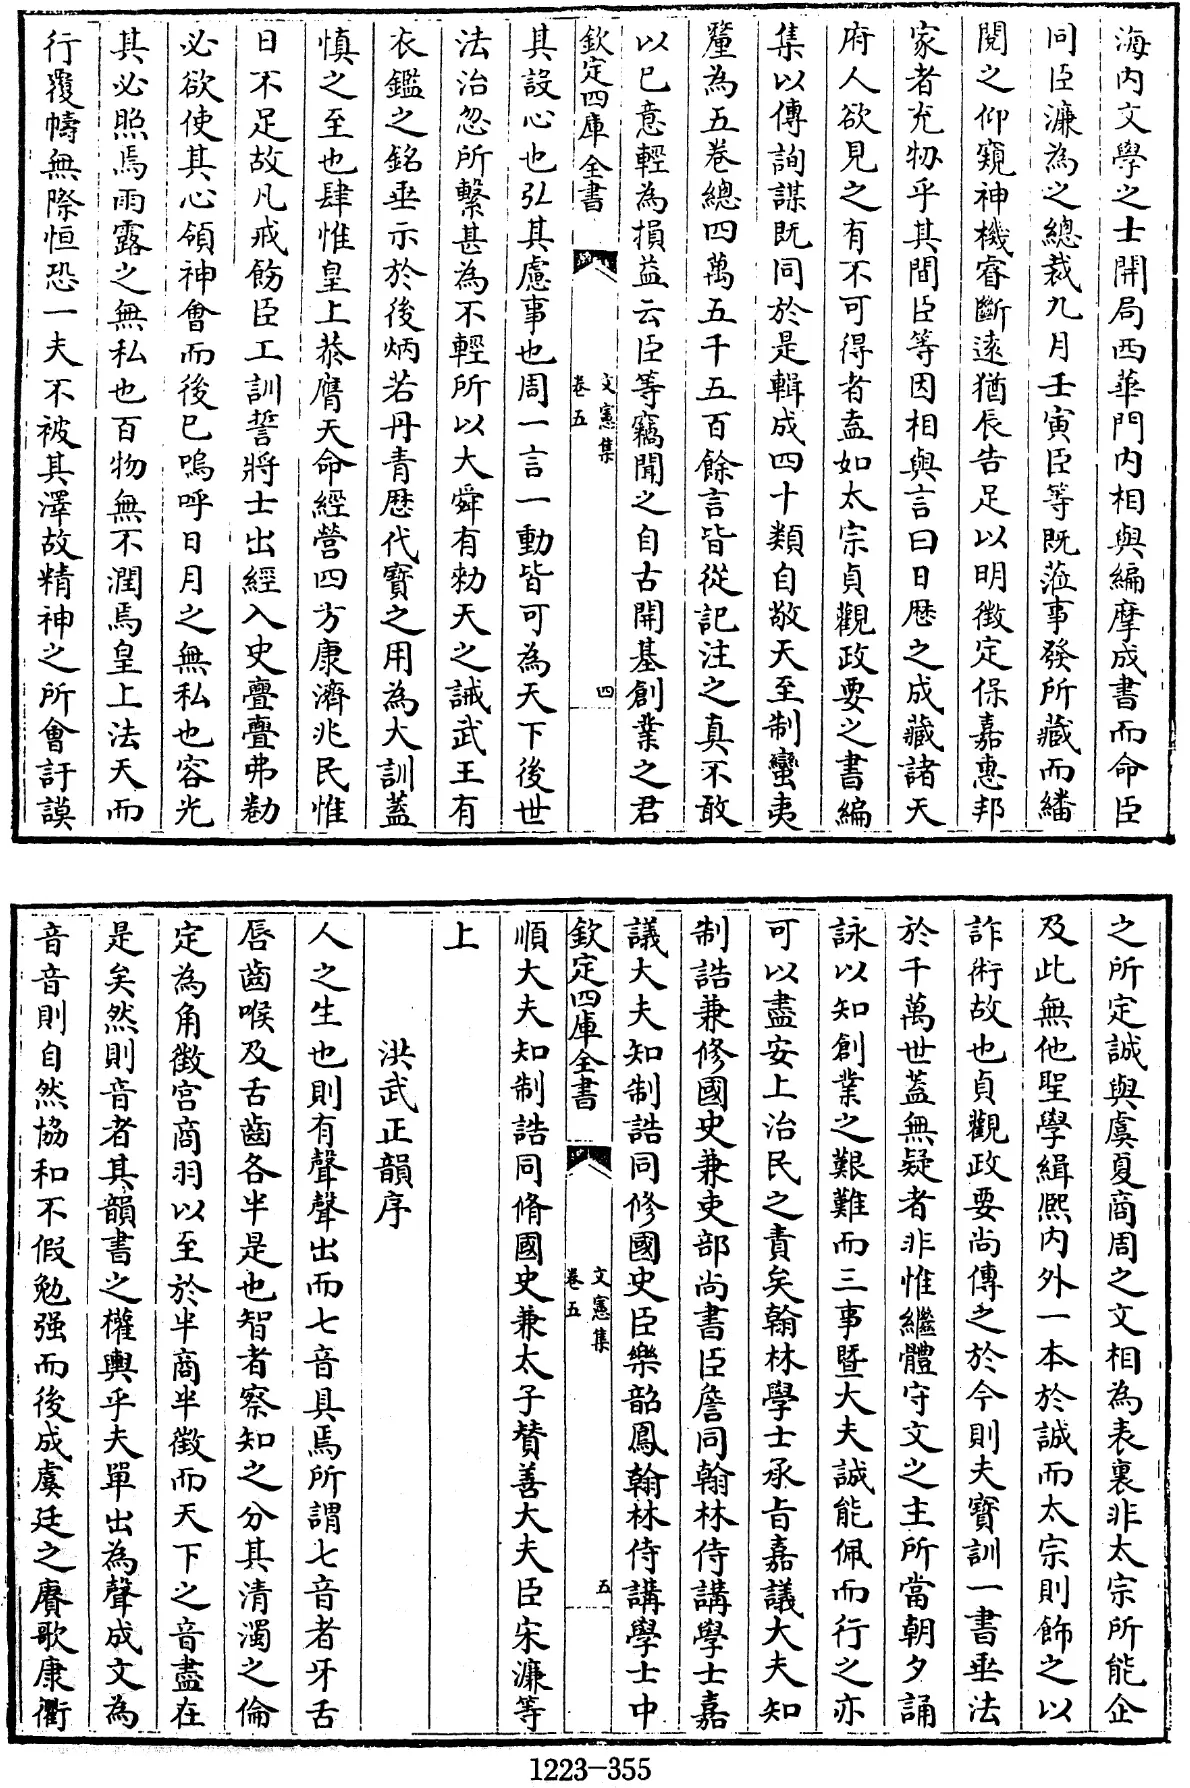 海内文學之士開局西華門内相與編摩成書而命臣
同臣濂為之總裁九月壬寅臣等既蒞事發所藏而繙
閱之仰窺神機睿斷逺猶辰告足以明徴定保嘉惠邦
家者充牣乎其間臣等因相與言曰日厯之成藏諸天
府人欲見之有不可得者盍如太宗貞觀政要之書編
集以傳詢謀既同於是輯成四十類自敬天至制蠻夷
釐為五巻總四萬五千五百餘言皆從記注之真不敢
以已意輕為損益云臣等竊聞之自古開基創業之君
欽定四庫全書
文憲集
卷五
四
其設心也弘其慮事也周一言一動皆可為天下後世
法治忽所繫甚為不輕所以大舜有勑天之誡武王有
衣鑑之銘垂示於後炳若丹青厯代寳之用為大訓蓋
慎之至也肆惟皇上恭膺天命經營四方康濟兆民惟
日不足故凡戒飭臣工訓誓將士出經入史亹亹弗勌
必欲使其心領神會而後已嗚呼日月之無私也容光
其必照焉雨露之無私也百物無不潤焉皇上法天而
行覆幬無際恒恐一夫不被其澤故精神之所會訏謨
之所定誠與虞夏商周之文相為表裏非太宗所能企
及此無他聖學緝熈内外一本於誠而太宗則飾之以
詐術故也貞觀政要尚傳之於今則夫寳訓一書垂法
於千萬世蓋無疑者非惟繼體守文之主所當朝夕誦
詠以知創業之艱難而三事暨大夫誠能佩而行之亦
可以盡安上治民之責矣翰林學士承旨嘉議大夫知
制誥兼修國史兼吏部尚書臣詹同翰林侍講學士嘉
議大夫知制誥同修國史臣樂韶鳳翰林侍講學士中
欽定四庫全書
文憲集
卷五
五
順大夫知制誥同脩國史兼太子賛善大夫臣宋濂等
上
洪武正韻序
人之生也則有聲聲出而七音具焉所謂七音者牙舌
唇齒喉及舌齒各半是也智者察知之分其清濁之倫
定為角徴宫商羽以至於半商半徴而天下之音盡在
是矣然則音者其韻書之權輿乎夫單出為聲成文為
音音則自然協和不假勉强而後成虞廷之賡歌康衢
1223—355